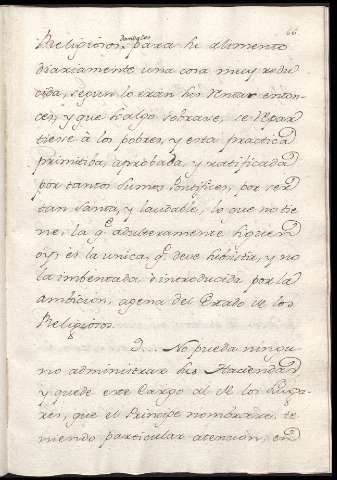 66
dandoles
Religiosos, para su alimento
diariamente una cosa muy redu
cida, segun lo eran sus rentas enton
ces, y que si algo sobrare, se repar
tiese à los pobres, y esta practica
primitiba, aprobada, y ratificada
por tantos Sumos Pontifices, por ser
tan Santa, y laudable, lo que no tie
ne, la q.e adulteramente siguen
oy, es la unica, q.e deve subsistir, y no
la imbentada è introducida por la
ambicion, agena del Estado de los
Religiosos.
9... No pueda ningu
no administrar sus Haciendas
y quede este cargo al de los Luga
res, que el Principe nombrare, te
niendo particular atencion, en